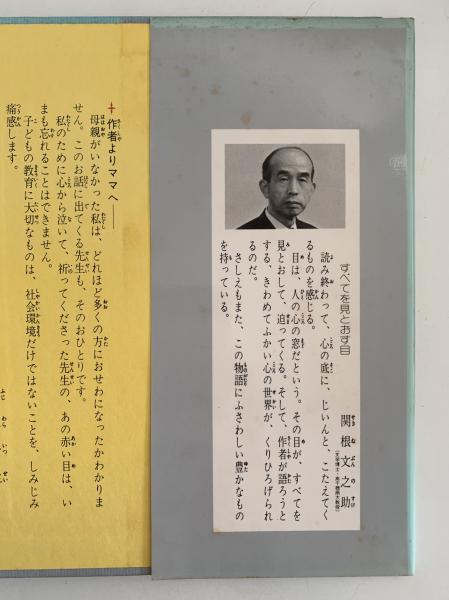 すべてを見とおす目
関根文之助
読み終わって、心の底に、じいんと、こたえてく
るものを感じる。
目は、人の心の窓だという。その目が、すべてを
見とおして、迫ってくる。そして、作者が語ろうと
する、きわめてふかい心の世界が、くりひろげられ
るのだ。
さしえもまた、この物語にふさわしい豊かなもの
を持っている。
+作者よりママへ――
母親がいなかった私は、どれほど多くの方におせわになったかわかりま
せん。このお話に出てくる先生も、そのおひとりです。
私のために心から泣いて、祈ってくださった先生の、あの赤い目は、い
まも忘れることはできません。
子どもの教育に大切なものは、社会環境だけではないことを、しみじみ
痛感します。